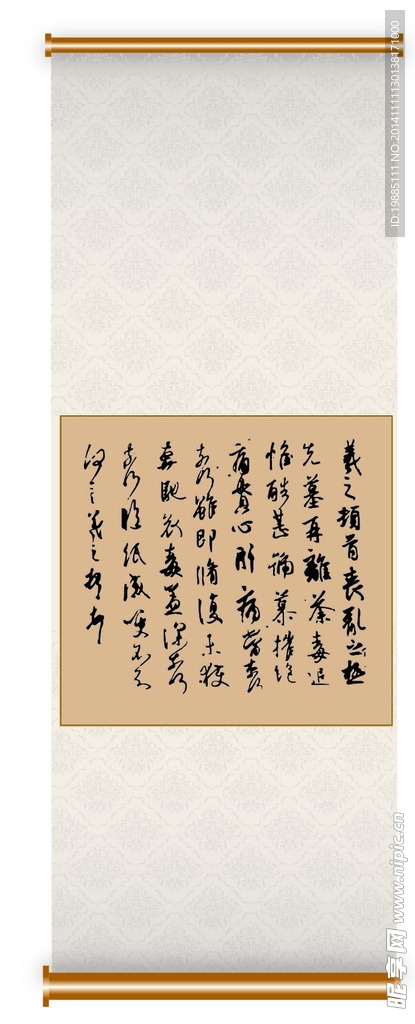 羲之頓首喪亂之極
先墓再離荼毒追
惟酷甚號慕摧絕
痛貫心肝痛當奈何
奈何雖即脩復未獲
奔馳哀毒益深奈何
奈何臨紙感哽不知
何言羲之頓首頓首
ID:19885111 NO:20141111130138471000
昵享网 www.nipic.cn